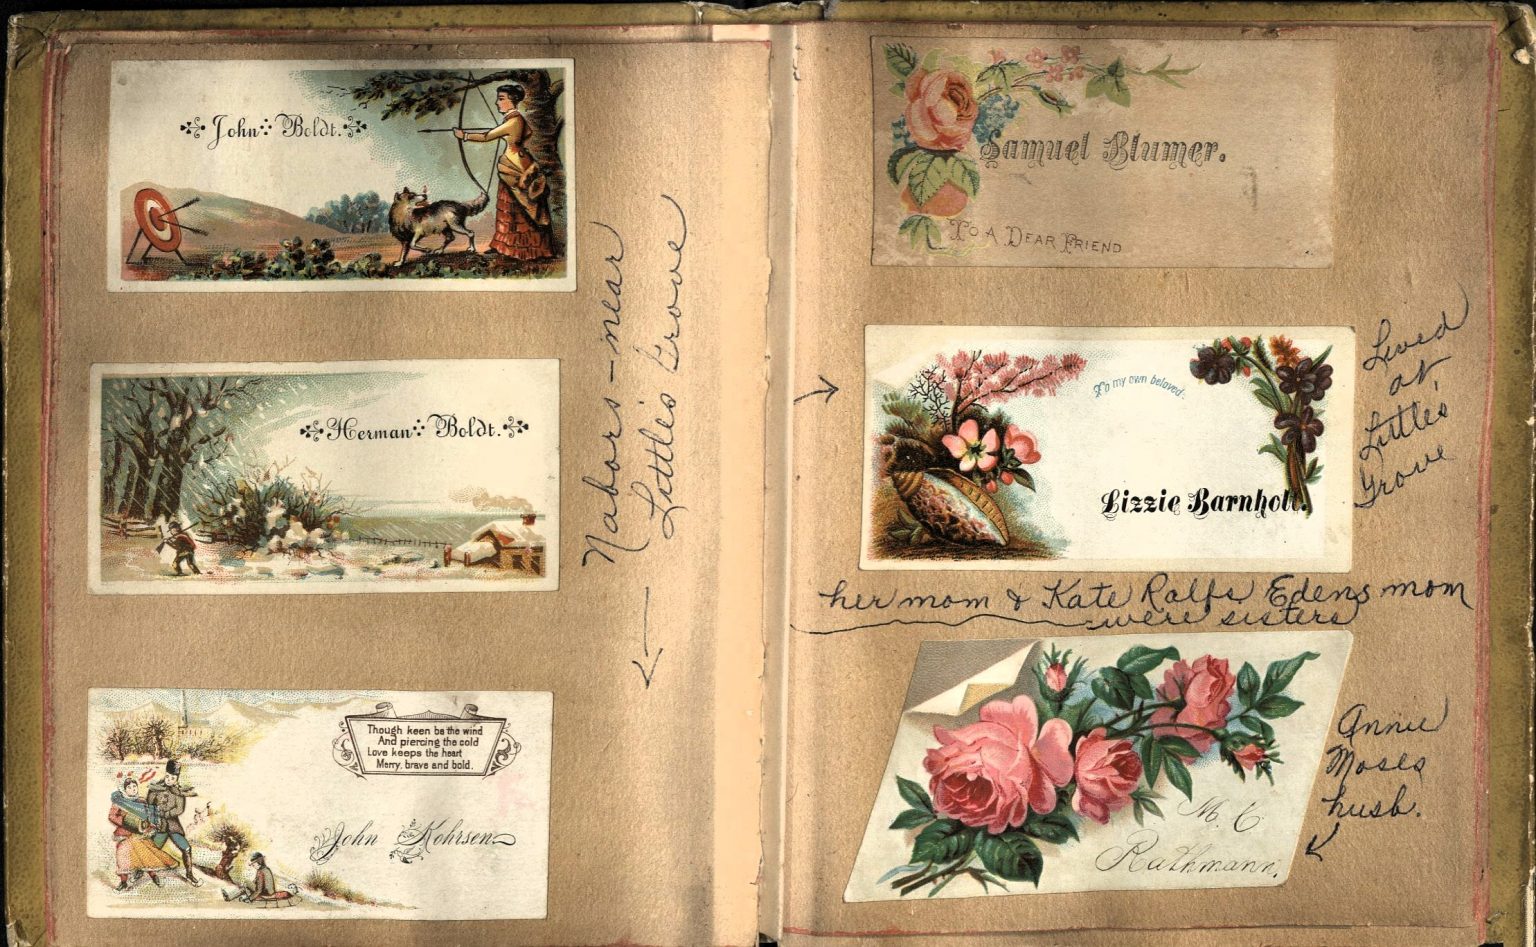 John Boldt.
Nabors - near
Little's Grove
Herman Boldt.
Though keen be the wind
And piercing the cold
Love keeps the heart
Merry, brave and bold.
John Kohrsen
Samuel Blumer.
TO A DEAR FRIEND
To my own beloved
Lizzie Barnholt.
Lived
at
Little's
Grove
her mom & Kate Ralfs Edens mom
were sisters
Annie
Moses
husb.
M. C.
Rathmann.